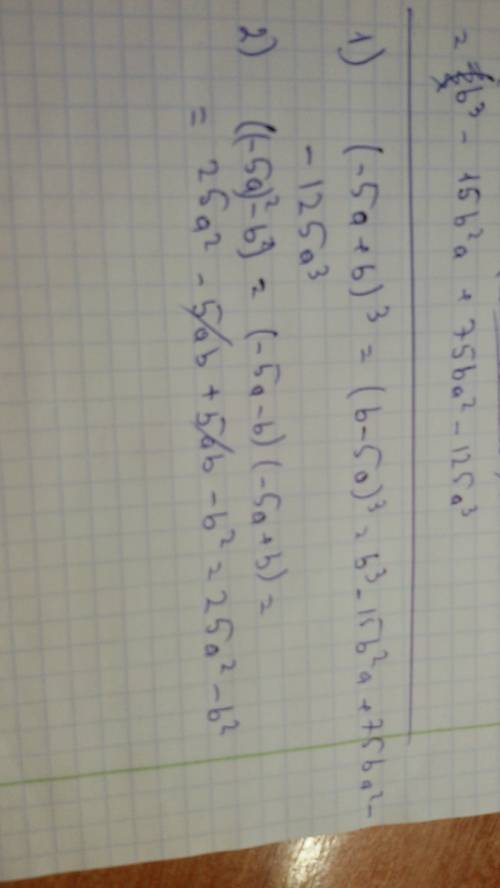 = b³ - 15b²a + 75ba² - 125a³
1) (-5a+b)³ = (b-5a)³ = b³ - 15b²a + 75ba² -
- 125a³
2) ((-5a)² - b²) = (-5a-b)(-5a+b) =
= 25a² - 5ab + 5ab - b² = 25a² - b²